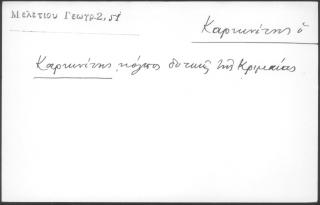 Μελετίου Γεωγρ. 2, 51
Καρκινίτης ὁ
Καρκινίτης κόλπος δυτικῶς τῆς Κριμαίας